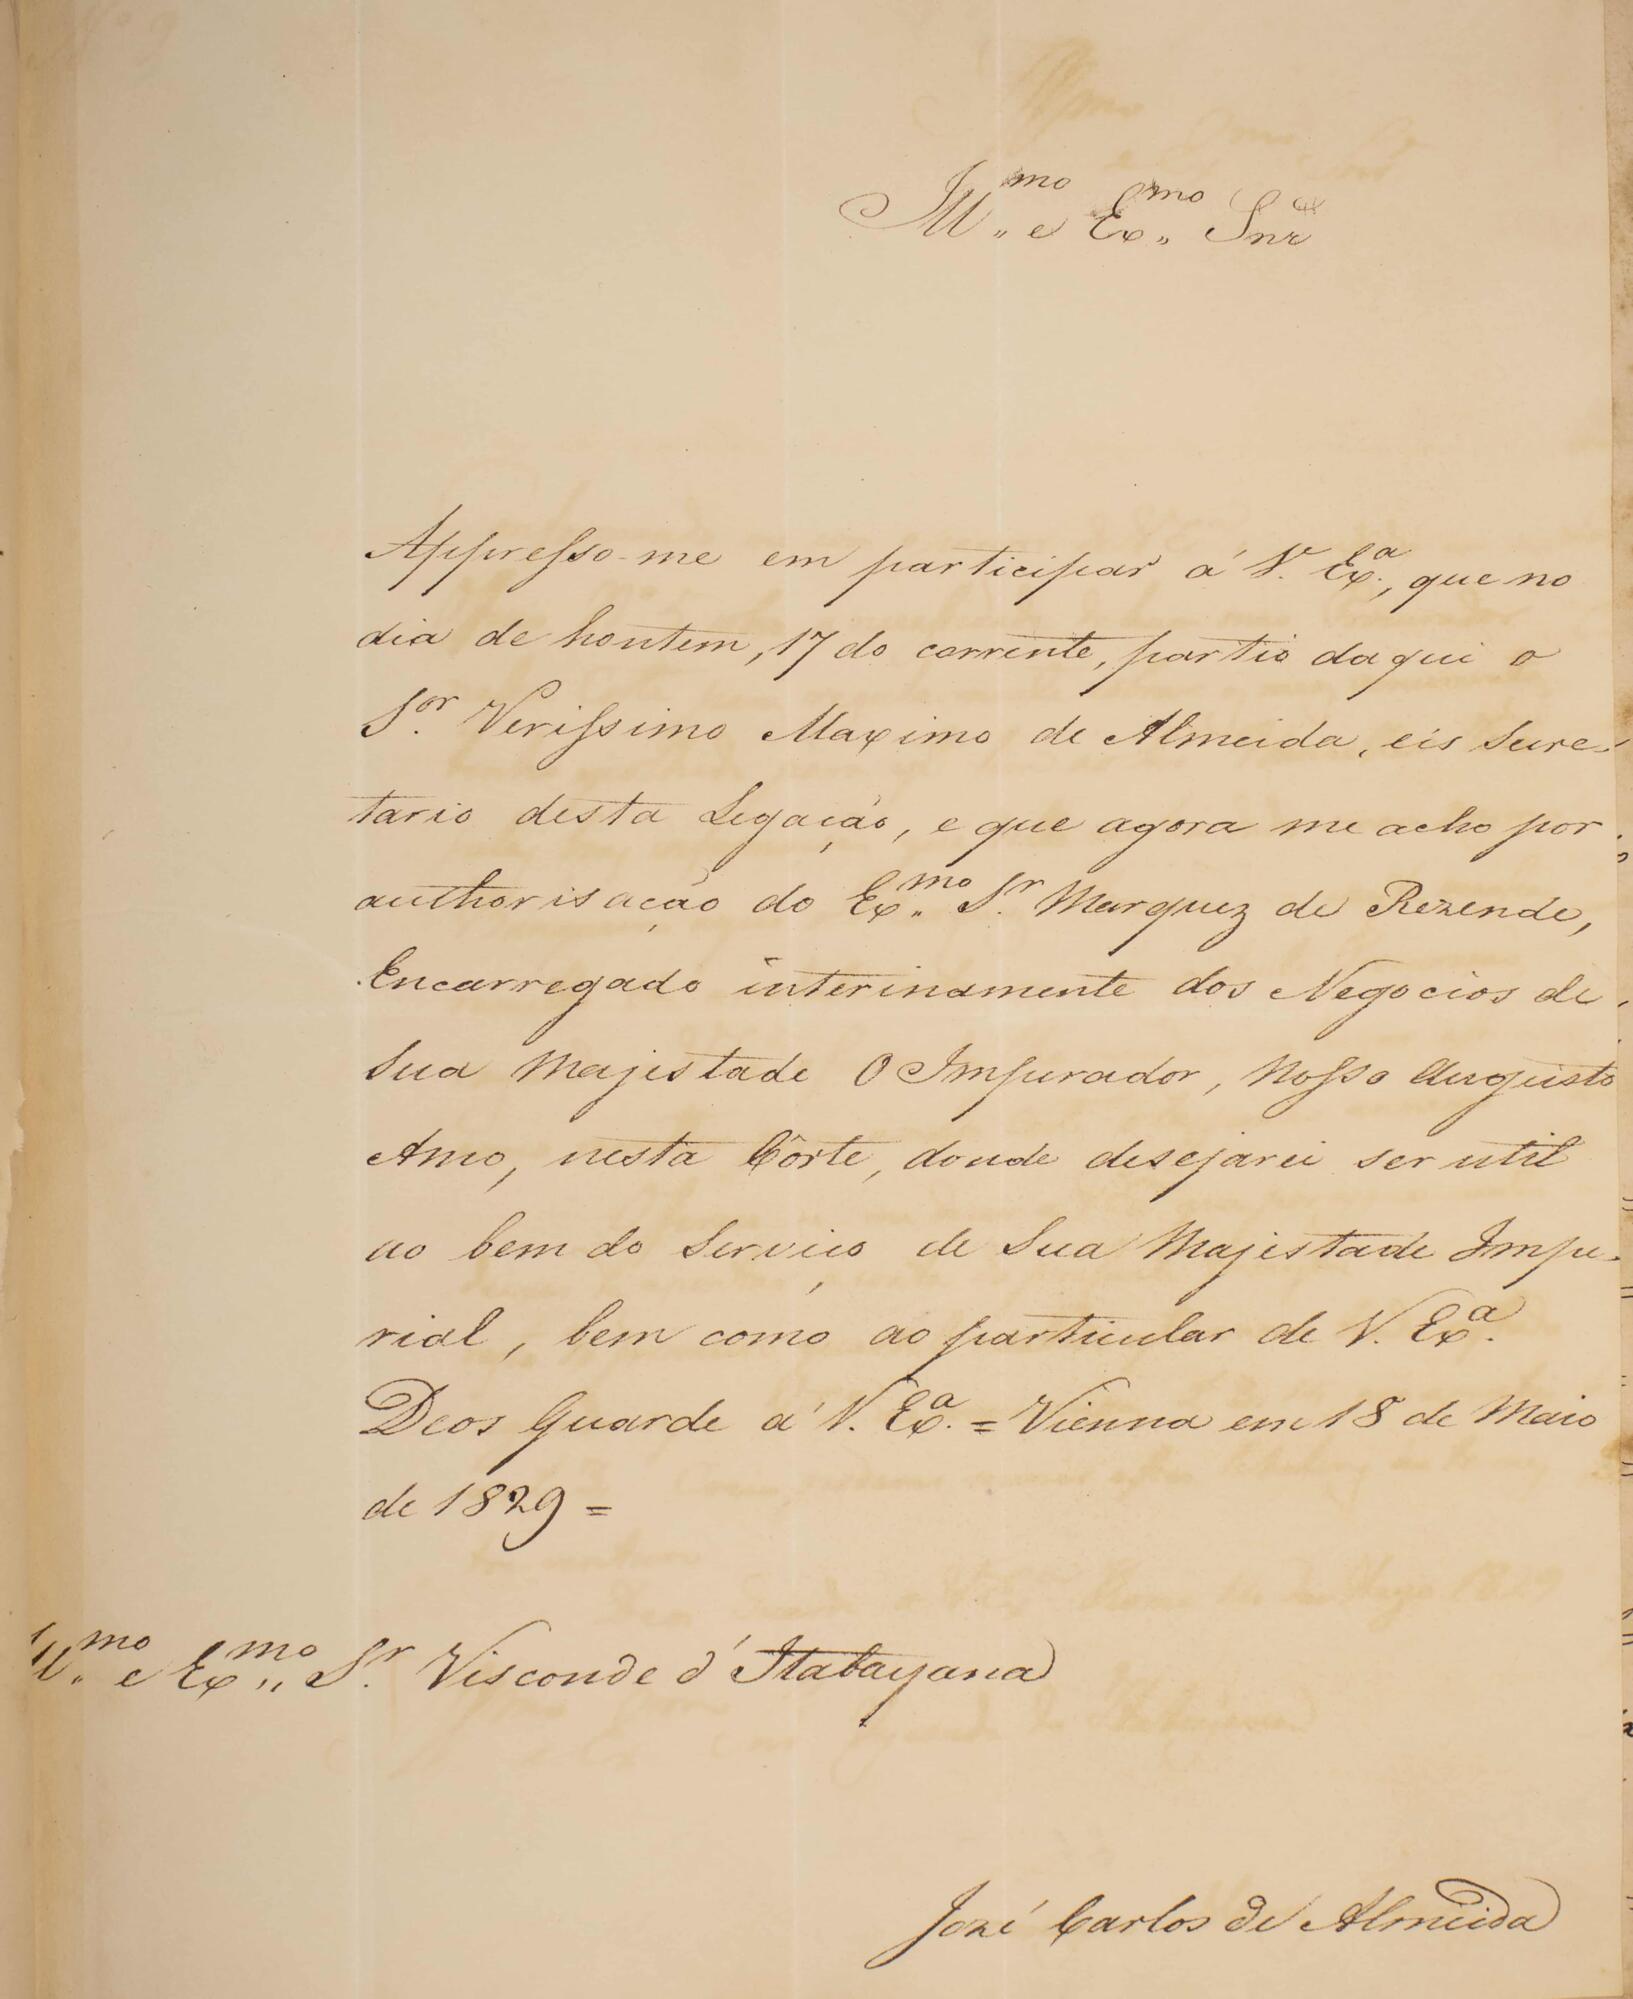 Ill.mo e Ex.mo Snr
Appresso-me em participar á V. Ex.a, que no
dia de hontem, 17 do corrente, partio daqui o
S.or Verissimo Maximo de Almeida, eis Secre-
tario desta Legação, e que agora me acho por
authorisação do Ex.mo S.r Marquez de Rezende,
Encarregado interinamente dos Negocios de
Sua Majestade O Imperador, Nosso Augusto
Amo, nesta Côrte, donde desejarei ser util
ao bem do Serviço de Sua Majestade Impe-
rial, bem como ao particular de V. Ex.a
Deos Guarde á V. Ex.a = Vienna em 18 de Maio
de 1829 =
Ill.mo e Ex.mo S.r Visconde d'Itabayana
José Carlos de Almeida